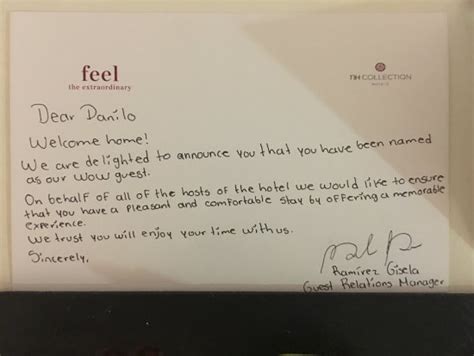 feel
the extraordinary
NH COLLECTION
Dear Danilo
Welcome home!
We are delighted to announce you that you have been named
as our WOW guest.
On behalf of all of the hosts of the hotel we would like to ensure
that you have a pleasant and comfortable stay by offering a memorable
experience.
We trust you will enjoy your time with us.
Sincerely,
Ramírez Gisela
Guest Relations Manager